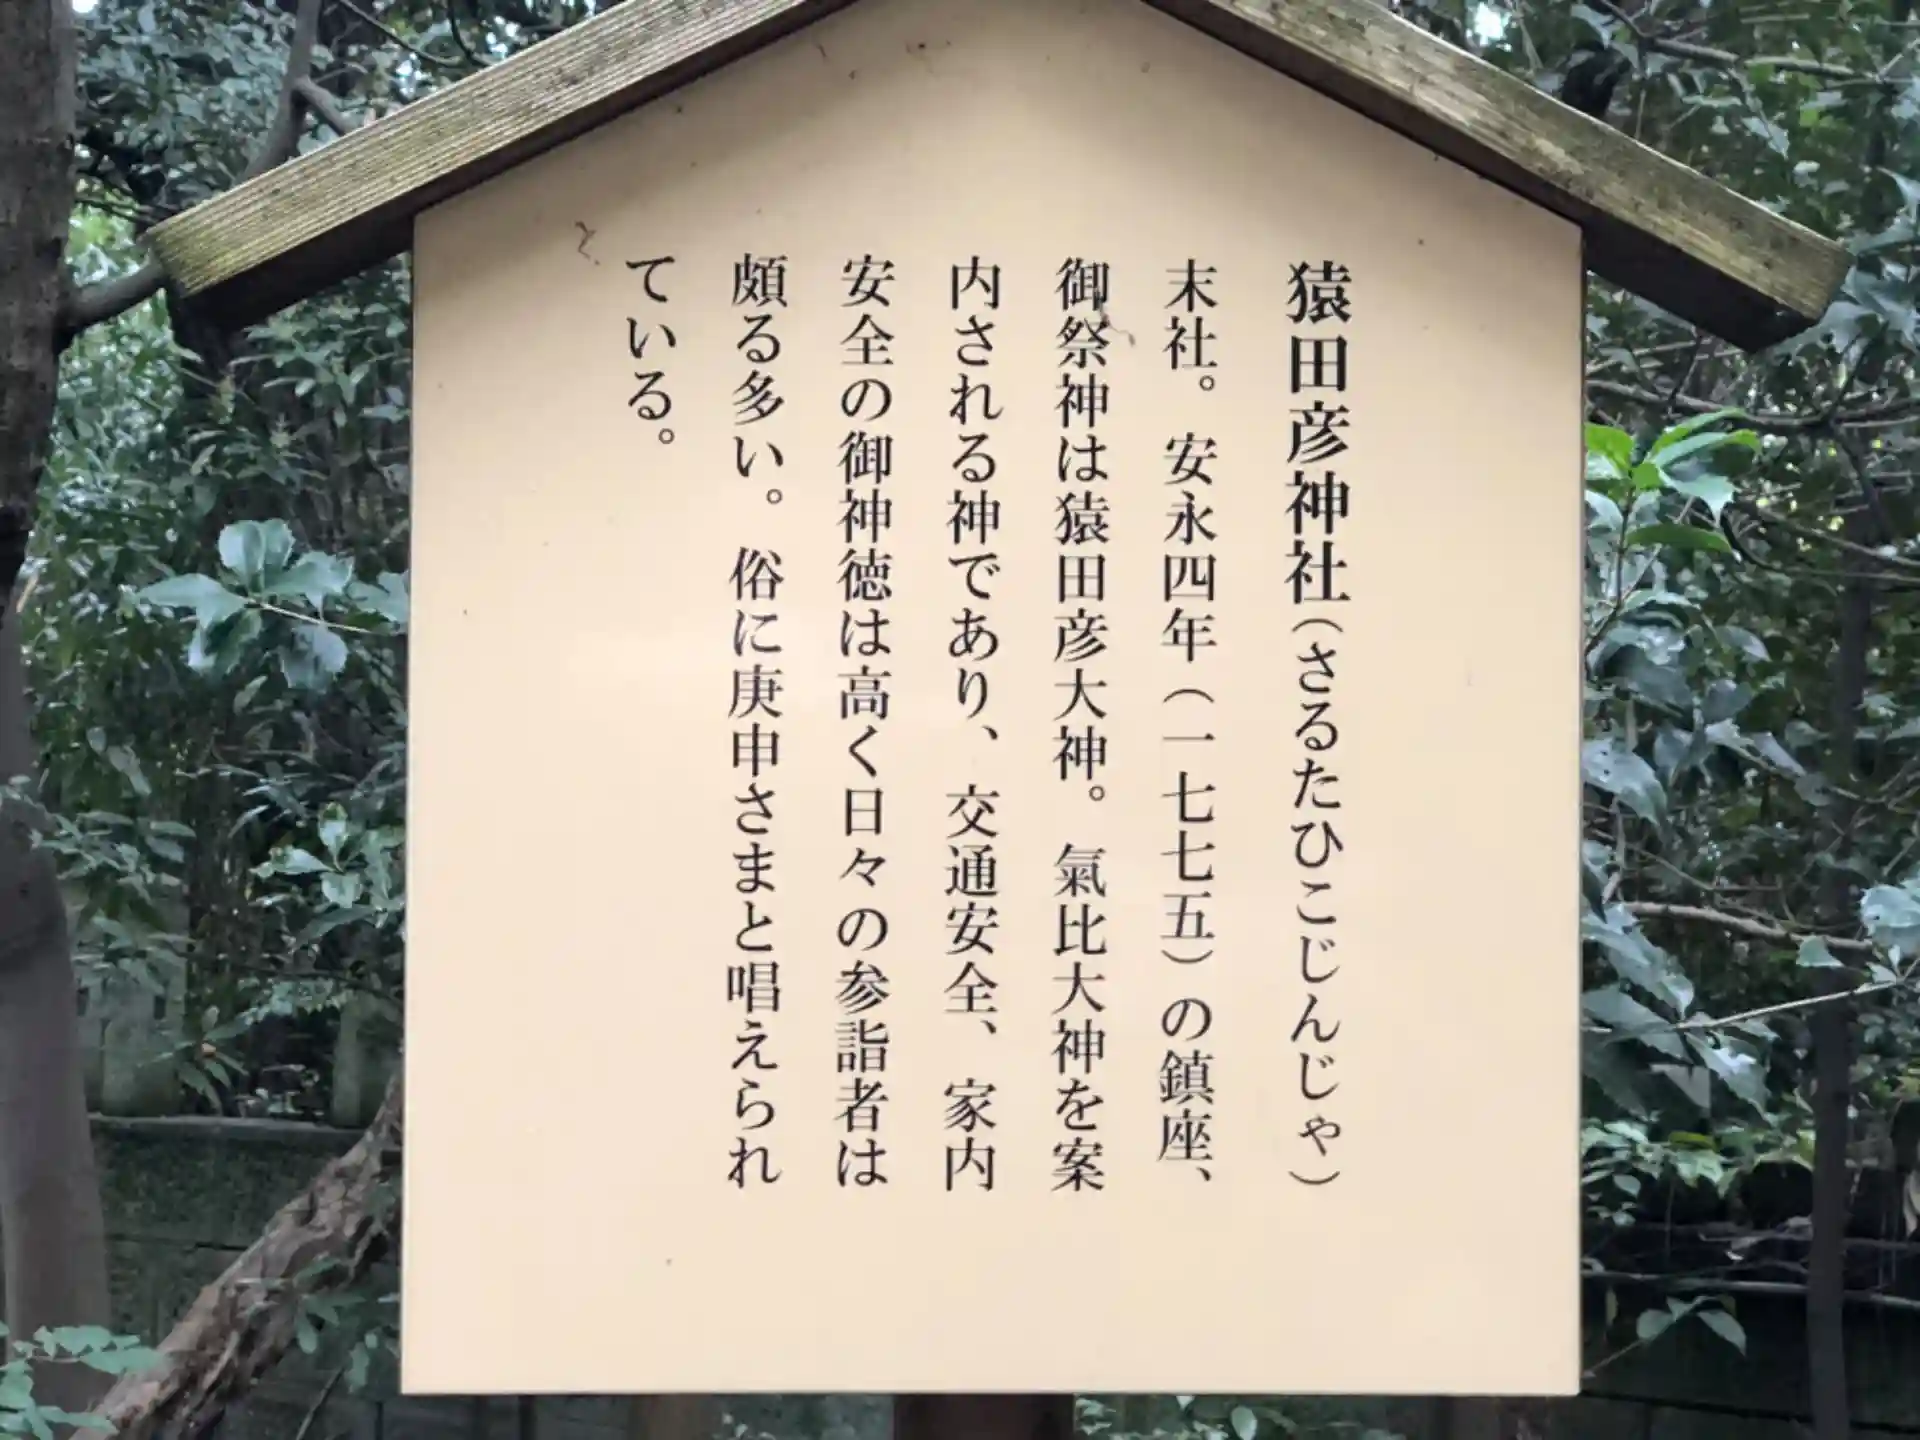 猿田彦神社（さるたひこじんじゃ）
末社。安永四年（一七七五）の鎮座、
御祭神は猿田彦大神。氣比大神を案
内される神であり、交通安全、家内
安全の御神徳は高く日々の参詣者は
頗る多い。俗に庚申さまと唱えられ
ている。